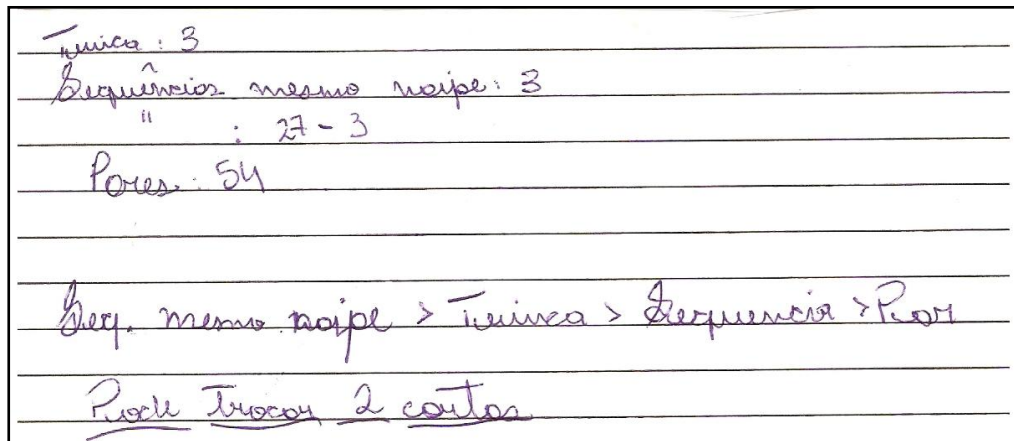 Trinca : 3
Sequências mesmo naipe: 3
" : 27 - 3
Pares : 54
Seq. mesmo naipe > Trinca > Sequencia > Par
Pode trocar 2 cartas